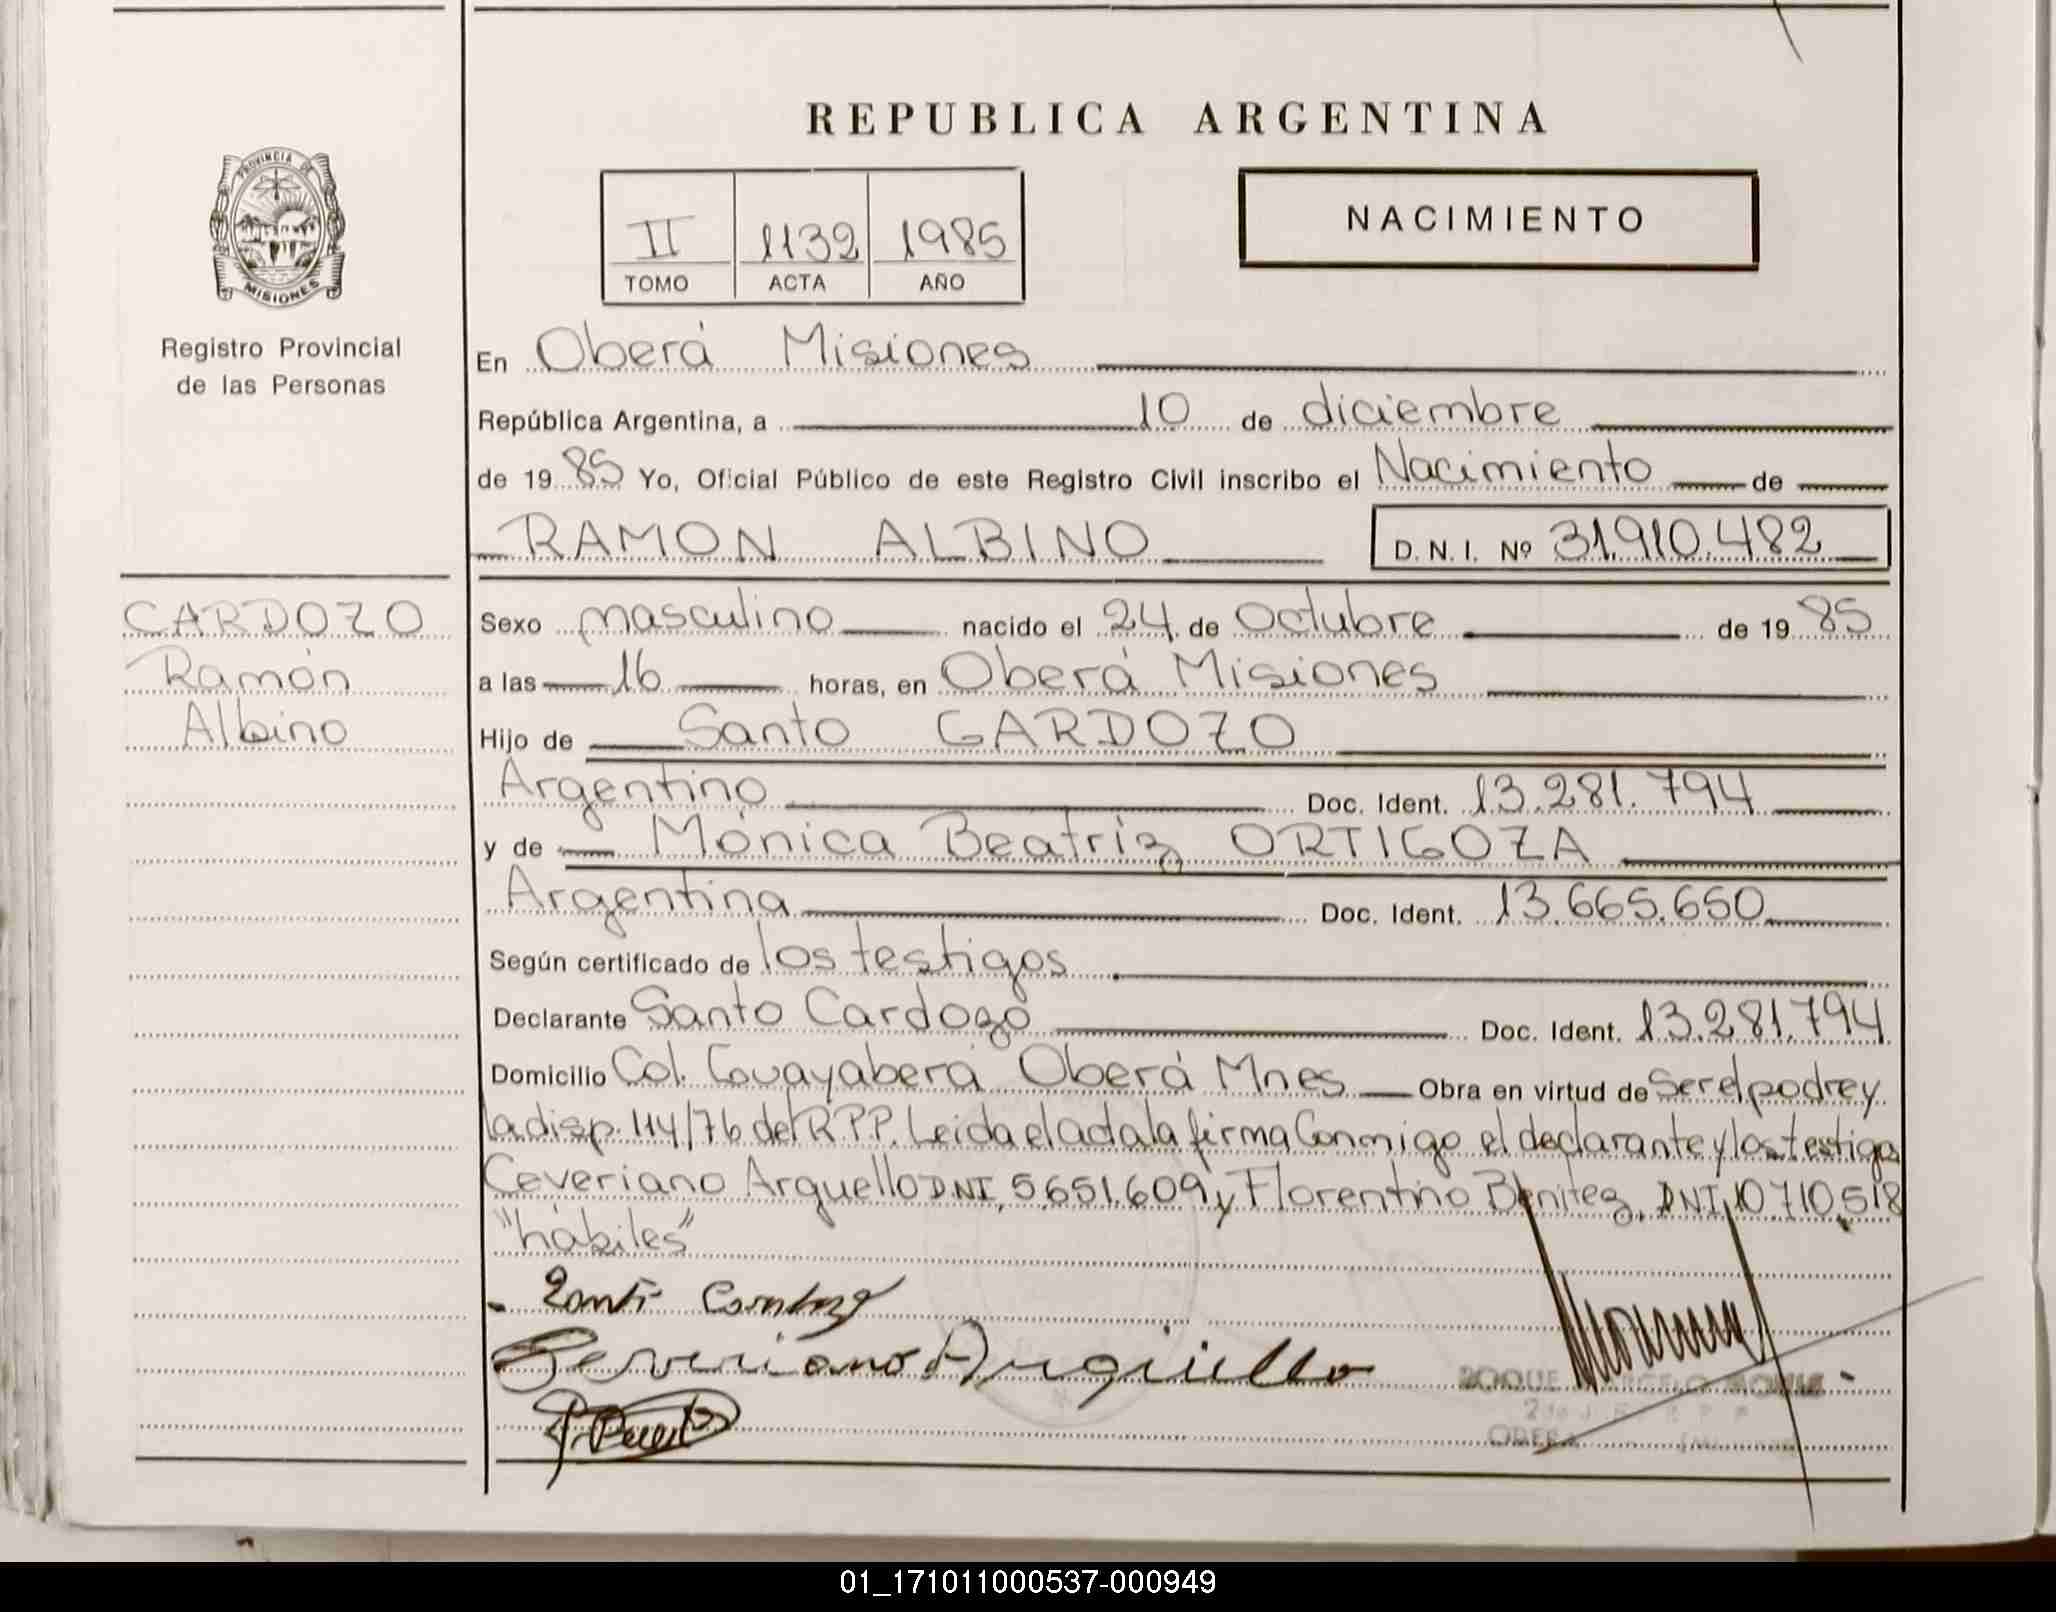 REPUBLICA ARGENTINA
PROVINCIA DE
MISIONES
Registro Provincial
de las Personas
II 1132 1985
TOMO ACTA AÑO
NACIMIENTO
En Oberá Misiones
República Argentina, a 10 de diciembre
de 1985 Yo, Oficial Público de este Registro Civil inscribo el Nacimiento de
RAMON ALBINO D.N.I. Nº 31.910.482
CARDOZO
Ramón
Albino
Sexo masculino nacido el 24 de Octubre de 1985
a las 16 horas, en Oberá Misiones
Hijo de Santo CARDOZO
Argentino Doc. Ident. 13.281.794
y de Mónica Beatriz ORTIGOZA
Argentina Doc. Ident. 13.665.650
Según certificado de los testigos
Declarante Santo Cardozo Doc. Ident. 13.281.794
Domicilio Col. Guayabera Oberá Mnes Obra en virtud de Ser el padre y
la disp. 114/76 del R.P.P. Leida el acta la firma Conmigo el declarante y los testigos
Ceveriano Arguello DNI 5.651.609 y Florentino Benitez, DNI 10.710.518
"hábiles"
Ceveriano Argüello
ROQUE MARCELO
OBERA
01_171011000537-000949